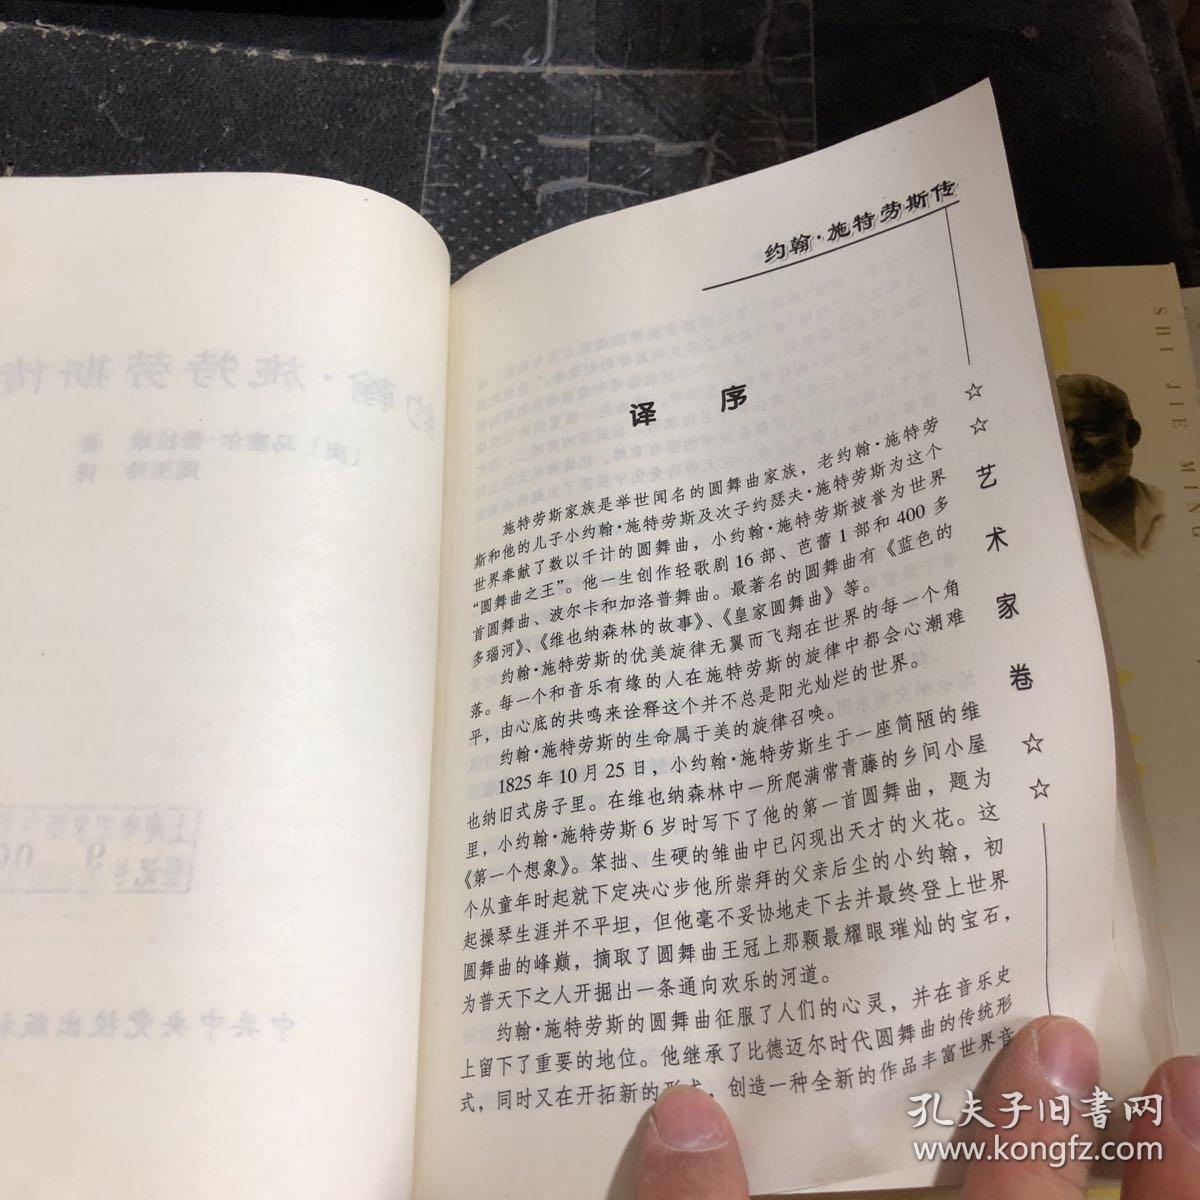 约翰·施特劳斯传
译 序
施特劳斯家族是举世闻名的圆舞曲家族，老约翰·施特劳
斯和他的儿子小约翰·施特劳斯及次子约瑟夫·施特劳斯为这个
世界奉献了数以千计的圆舞曲，小约翰·施特劳斯被誉为世界
“圆舞曲之王”。他一生创作轻歌剧16部、芭蕾1部和400多
首圆舞曲、波尔卡和加洛普舞曲。最著名的圆舞曲有《蓝色的
多瑙河》、《维也纳森林的故事》、《皇家圆舞曲》等。
约翰·施特劳斯的优美旋律无翼而飞翔在世界的每一个角
落。每一个和音乐有缘的人在施特劳斯的旋律中都会心潮难
平，由心底的共鸣来诠释这个并不总是阳光灿烂的世界。
约翰·施特劳斯的生命属于美的旋律召唤。
1825年10月25日，小约翰·施特劳斯生于一座简陋的维
也纳旧式房子里。在维也纳森林中一所爬满常青藤的乡间小屋
里，小约翰·施特劳斯6岁时写下了他的第一首圆舞曲，题为
《第一个想象》。笨拙、生硬的雏曲中已闪现出天才的火花。这
个从童年时起就下定决心步他所崇拜的父亲后尘的小约翰，初
起操琴生涯并不平坦，但他毫不妥协地走下去并最终登上世界
圆舞曲的峰巅，摘取了圆舞曲王冠上那颗最耀眼璀灿的宝石，
为普天下之人开掘出一条通向欢乐的河道。
约翰·施特劳斯的圆舞曲征服了人们的心灵，并在音乐史
上留下了重要的地位。他继承了比德迈尔时代圆舞曲的传统形
式，同时又在开拓新的形式，创造一种全新的作品丰富世界音
☆☆艺术家卷☆☆
SHI JIE MING
孔夫子旧书网
www.kongfz.com